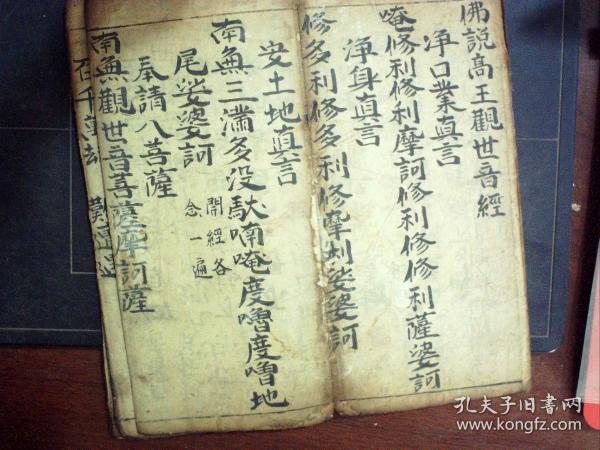 佛説高王觀世音經
淨口業真言
唵修利修利摩訶修利修修利薩婆訶
淨身真言
修多利修多利修摩利娑婆訶
安土地真言
南無三滿多没馱喃唵度嚕度嚕地
尾娑婆訶
開經各
念一遍
奉請八菩薩
南無觀世音菩薩摩訶薩
孔夫子旧书网
www.kongfz.com